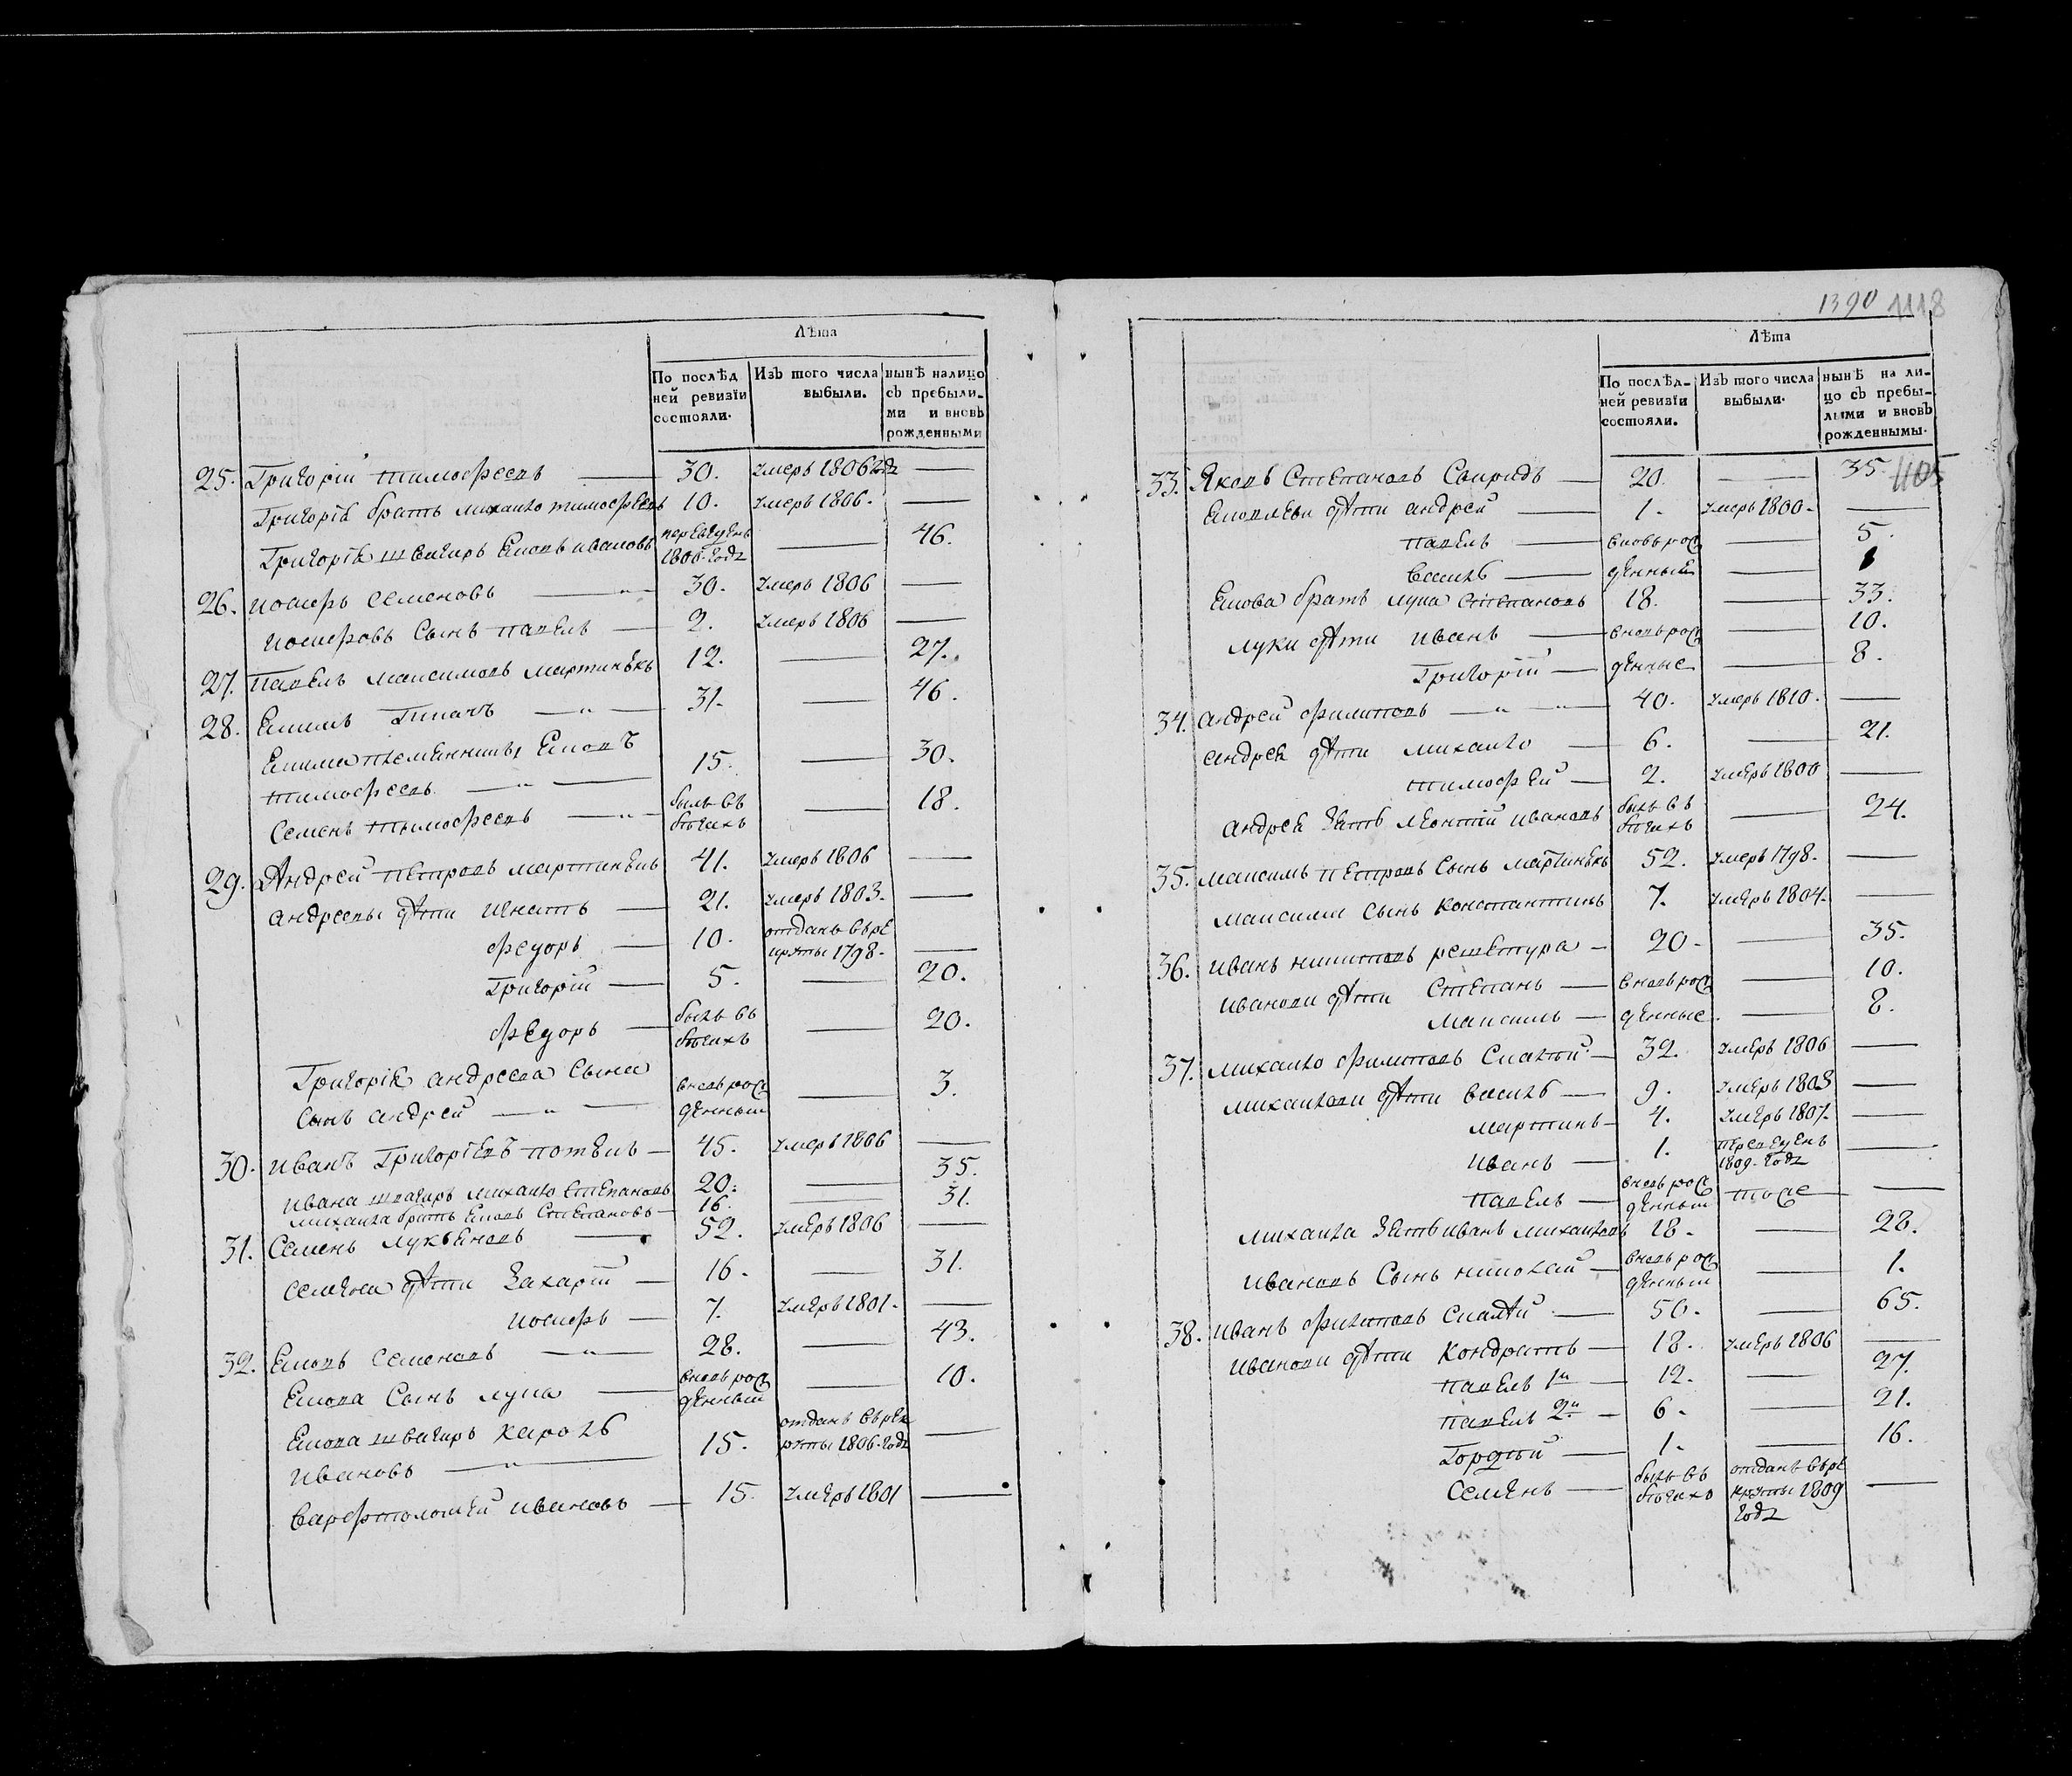 Лѣта
По послѣд
ней ревизїи
состояли.
Изъ того числа
выбыли.
нынѣ налицо
съ пребыли-
ми и вновь
рожденными
25. Григорій Тимофеевъ — 30. умеръ 1806 года —
Григорія братъ михайло тимофеевъ 10. умеръ 1806. —
Григорія швагиръ Яковъ ивановъ переведенъ 1806. года — 46.
26. иосифъ семеновъ — 30. умеръ 1806 —
иосифовъ Сынъ павелъ — 2. умеръ 1806 —
27. павелъ максимовъ мартинъкъ 12. — 27.
28. Якимъ — 31. — 46.
Якима племянники Яковъ
тимофеевъ — 15. — 30.
Семенъ тимофеевъ — былъ въ бѣгахъ — 18.
29. Андрей петровъ мартинъкъ 41. умеръ 1806 —
андреевы дѣти игнатъ — 21. умеръ 1803. —
федоръ — 10. отданъ врѣ круты 1798. —
Григорій — 5. — 20.
федоръ — былъ въ бѣгахъ — 20.
Григорія андреева Сына
Сынъ андрей — вновь рож денный — 3.
30. иванъ Григорїевъ — 45. умеръ 1806 —
ивана швагиръ михайло степановъ 20. — 35.
михайла братъ Яковъ Степановъ — 16. — 31.
31. Семенъ лукьяновъ — 52. умеръ 1806 —
семена дѣти Захарій — 16. — 31.
иосифъ — 7. умеръ 1801. —
32. Яковъ семеновъ — 28. — 43.
Якова Сынъ лука — вновь рож денный — 10.
Якова швагиръ кароль
ивановъ — 15. отданъ врек руты 1806. года —
варфоломей ивановъ — 15. умеръ 1801 —
1390 1118
Лѣта
По послѣд-
ней ревизїи
состояли.
Изъ того числа
выбыли.
нынѣ на ли-
цо съ пребы-
лыми и вновь
рожденнымы.
1105
33. Яковъ Степановъ Свиридъ — 20. — 35.
Яковлевы дѣти андрей — 1. умеръ 1800. —
павелъ — вновь рож — 5.
василь — денные —
Якова братъ лука степановъ 18. — 33.
луки дѣти иванъ — вновь рож — 10.
Григорій — денные — 8.
34. андрей филиповъ — 40. умеръ 1810. —
андрея дѣти михайло — 6. — 21.
тимофей — 2. умеръ 1800 —
андрея зять леонтій ивановъ былъ въ бѣгахъ — 24.
35. максимъ петровъ Сынъ мартинъкъ 52. умеръ 1798. —
максима сынъ константинъ 7. умеръ 1804. —
36. иванъ никитовъ решетура — 20. — 35.
иванови дѣти Степанъ — вновь рож — 10.
максимъ — денные. — 8.
37. михайло филиповъ — 32. умеръ 1806 —
михайлови дѣти василь — 9. умеръ 1803 —
мартинъ — 4. умеръ 1807. —
иванъ — 1. переведенъ 1809. года —
павелъ — вновь рож денный тоже —
михайла зять иванъ михайловъ 18. — 28.
ивановъ Сынъ николай — вновь рож денный — 1.
38. иванъ филиповъ — 50. — 65.
иванови дѣти кондратъ — 18. умеръ 1806 —
павелъ 1й — 12. — 27.
павелъ 2й — 6. — 21.
Гордѣй — 1. — 16.
Семенъ — былъ въ бѣгахъ отданъ врѣ круты 1809 года —